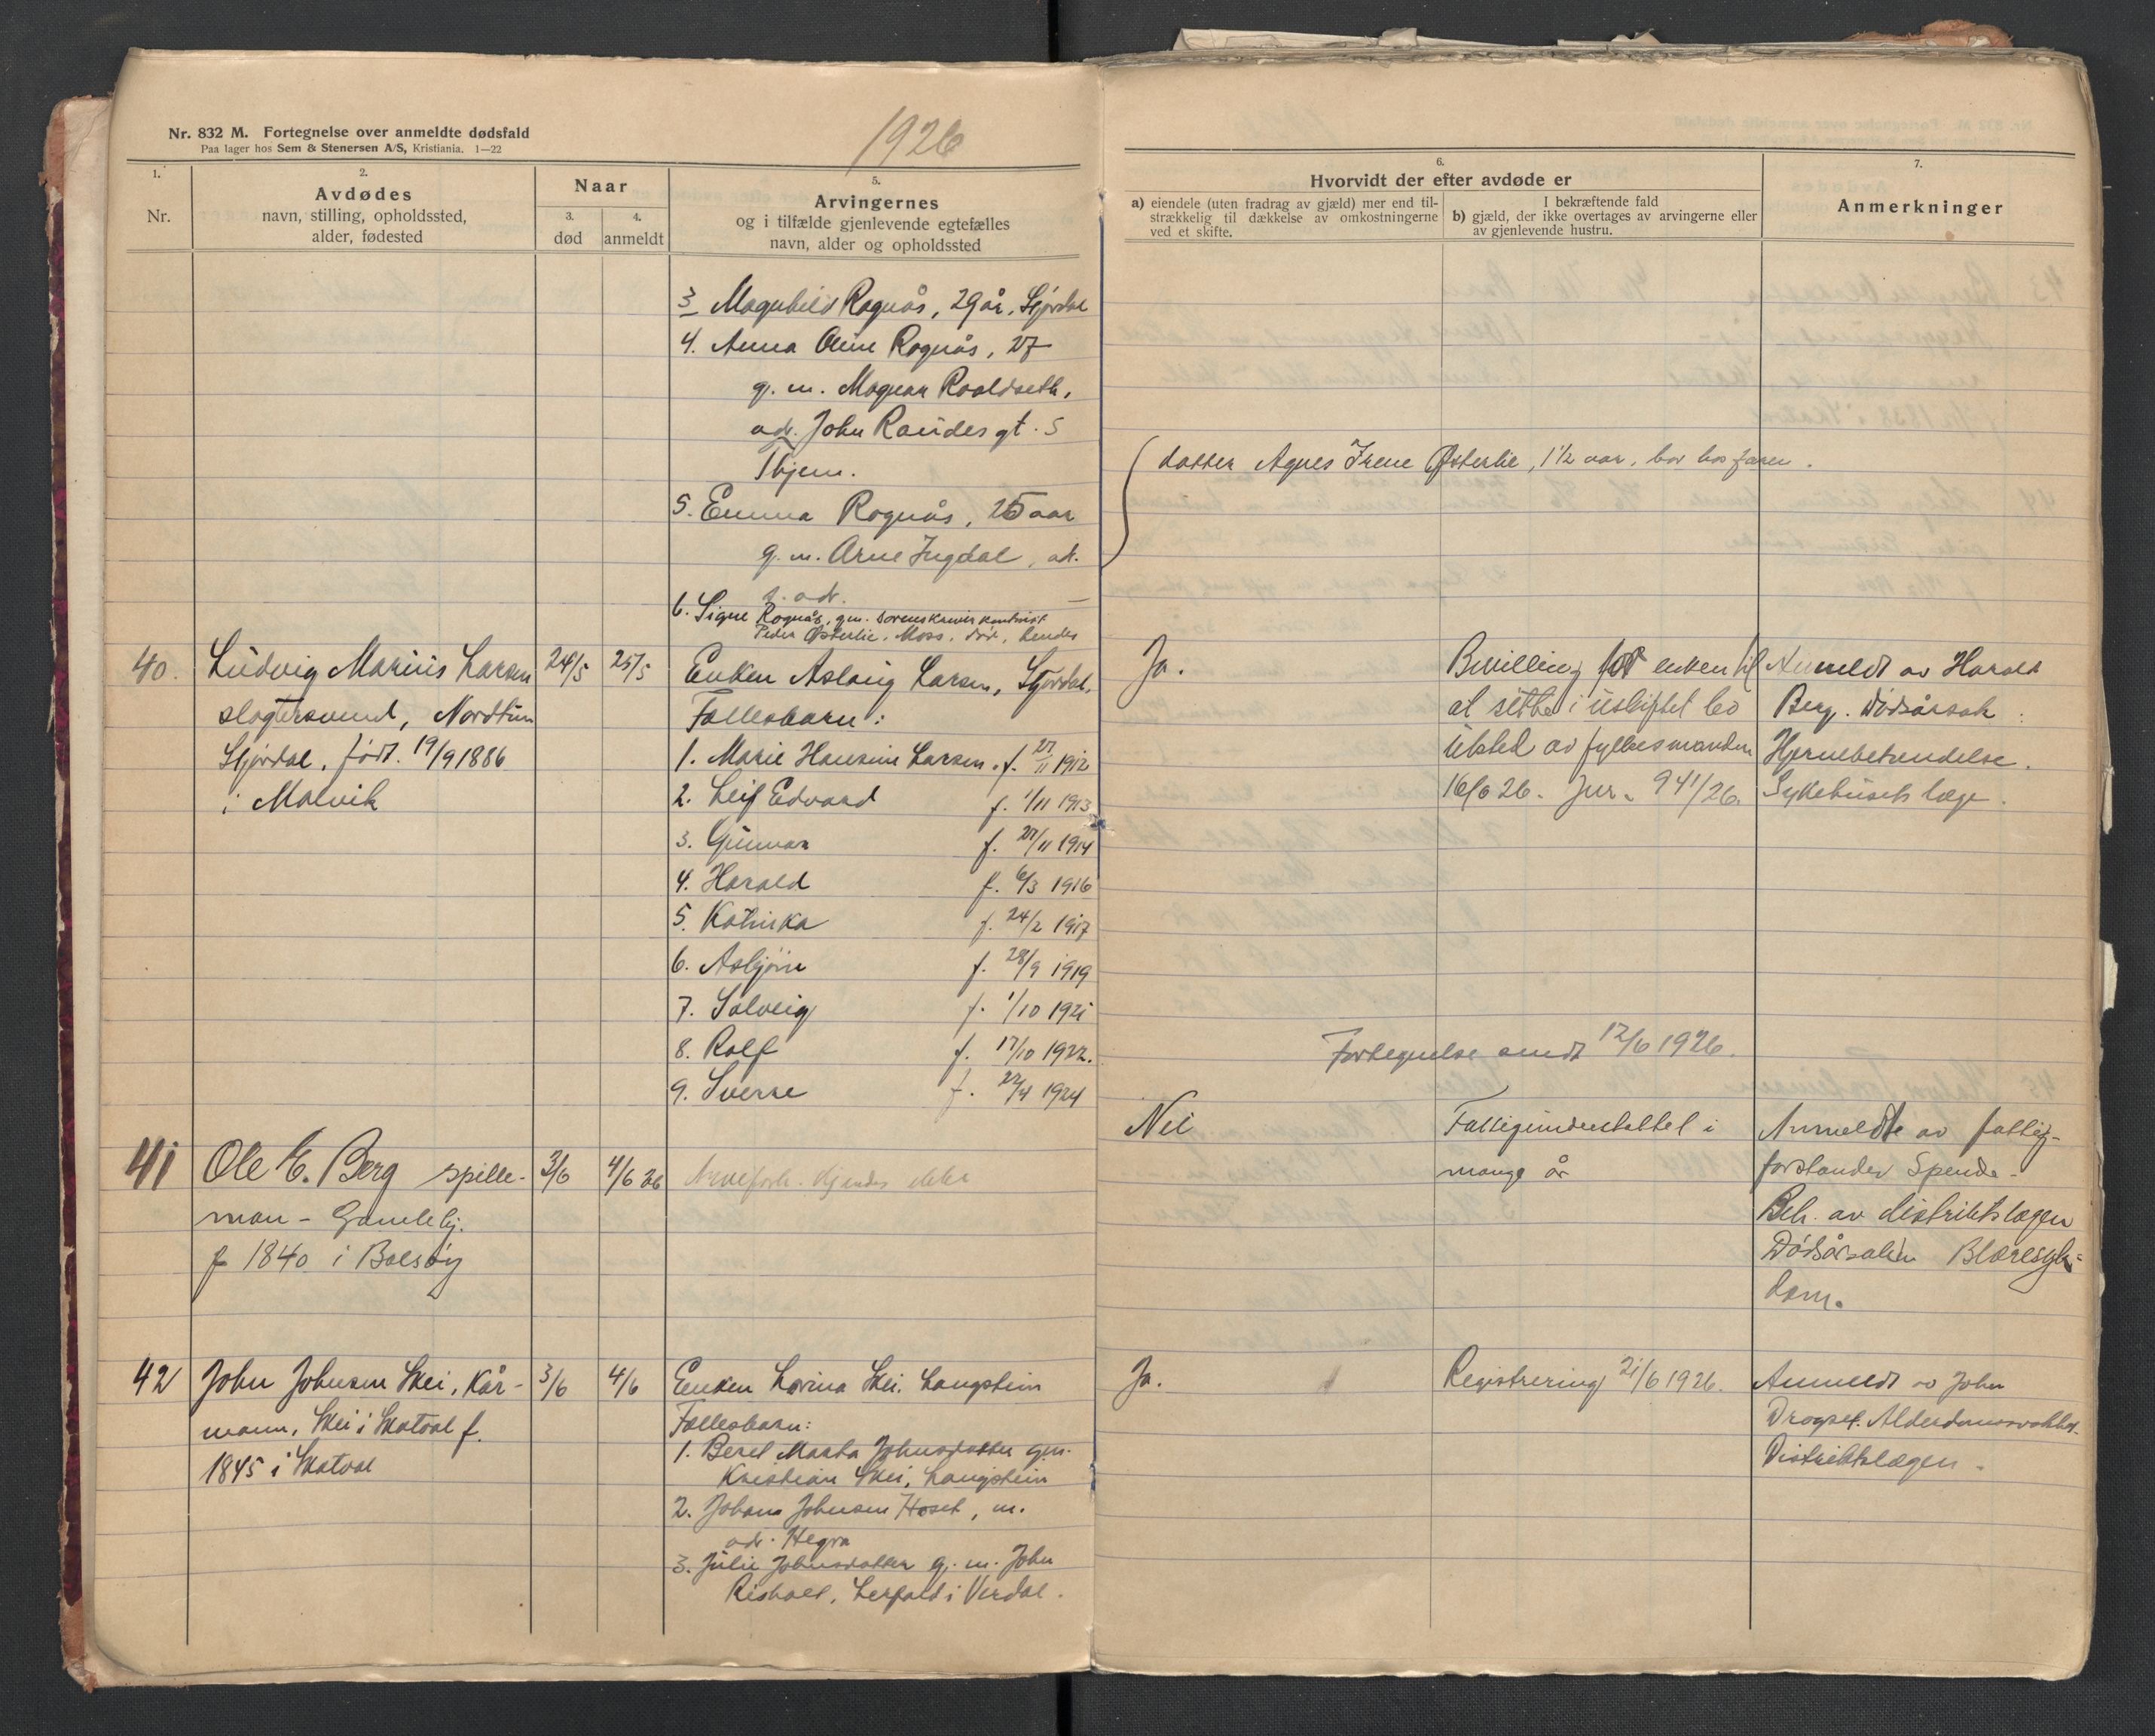 Nr. 832 M. Fortegnelse over anmeldte dødsfald
Paa lager hos Sem & Stenersen A/S, Kristiania. 1—22
1926
1.
Nr.
2.
Avdødes
navn, stilling, opholdssted,
alder, fødested
Naar
3.
død
4.
anmeldt
5.
Arvingernes
og i tilfælde gjenlevende egtefælles
navn, alder og opholdssted
3 Magnhild Rognås, 29 år, Stjørdal
4. Anna Oline Rognås, 27
g. m. Magnar Roaldseth,
adr. John Raudes gt. 5
Thjem.
5. Emma Rognås, 25 aar
g. m. Arne Ingdal, ad.
s. adr.
6. Signe Rognås, gm. sorenskriverkontorist
Peder Østerlie, Moss, død, hendes
40. Ludvig Marius Larsen 24/5 25/5
slagtersvend, Nordtun
Stjørdal, født. 19/9 1886
i Malvik
Enken Aslaug Larsen, Stjørdal,
Fællesbarn:
1. Marie Hansine Larsen. f. 27/11 1912
2. Leif Edvard f. 1/11 1913
3. Gunnar f. 27/11 1914
4. Harald f. 6/3 1916
5. Katinka f. 24/2 1917
6. Asbjørn f. 28/9 1919
7. Solveig f. 1/10 1921
8. Rolf f. 17/10 1922.
9. Sverre f. 22/4 1924
41 Ole E. Berg spille- 3/6 4/6 26
man - Gamleby.
f 1840 i Bolsøy
kjendes ikke
42 John Johnsen Skei, Kår- 3/6 4/6
mann, Skei i Skatval f.
1845 i Skatval
Enken Lovina Skei, Langstein
Fællesbarn:
1. Beret Marta Johnsdatter gm.
Kristian Skei, Langstein
2. Johans Johnsen Hoset, m.
adr. Hegra
3. Julie Johnsdatter g. m. John
Rishaet, Lerfald i Verdal.
6.
Hvorvidt der efter avdøde er
a) eiendele (uten fradrag av gjæld) mer end til-
strækkelig til dækkelse av omkostningerne
ved et skifte.
I bekræftende fald
b) gjæld, der ikke overtages av arvingerne eller
av gjenlevende hustru.
7.
Anmerkninger
datter Agnes Irene Østerlie, 1 1/2 aar, bor hos faren.
Ja.
Bevilling for enken til
at sitte i uskiftet bo
utsted av fylkesmanden
16/6 26. Jnr. 941/26.
Anmeldt av Harald
Berg. Dødsårsak:
Hjernebetendelse.
Sykehusets læge.
Fortegnelse sendt 12/6 1926.
Nei
Fattigunderstøttet i
mange år
Anmeldt av fattig-
forstander Spende-
Beh. av distriktslægen
Dødsårsaken Blæresyk-
dom.
Ja.
Registrering 21/6 1926.
Anmeldt av John
Drogset. Alderdomssvakhet.
Distriktslægen.